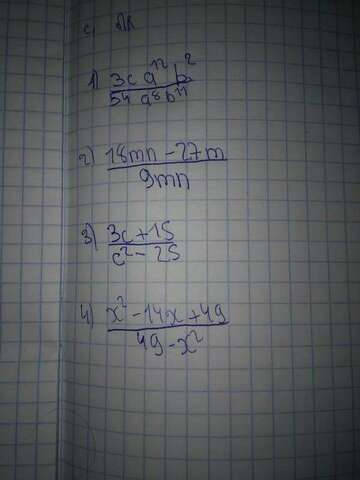 1) 3c a¹² b² / 54 a⁸ b¹¹
2) 18mn - 27m / 9mn
3) 3c + 15 / c² - 25
4) x² - 14x + 49 / 49 - x²